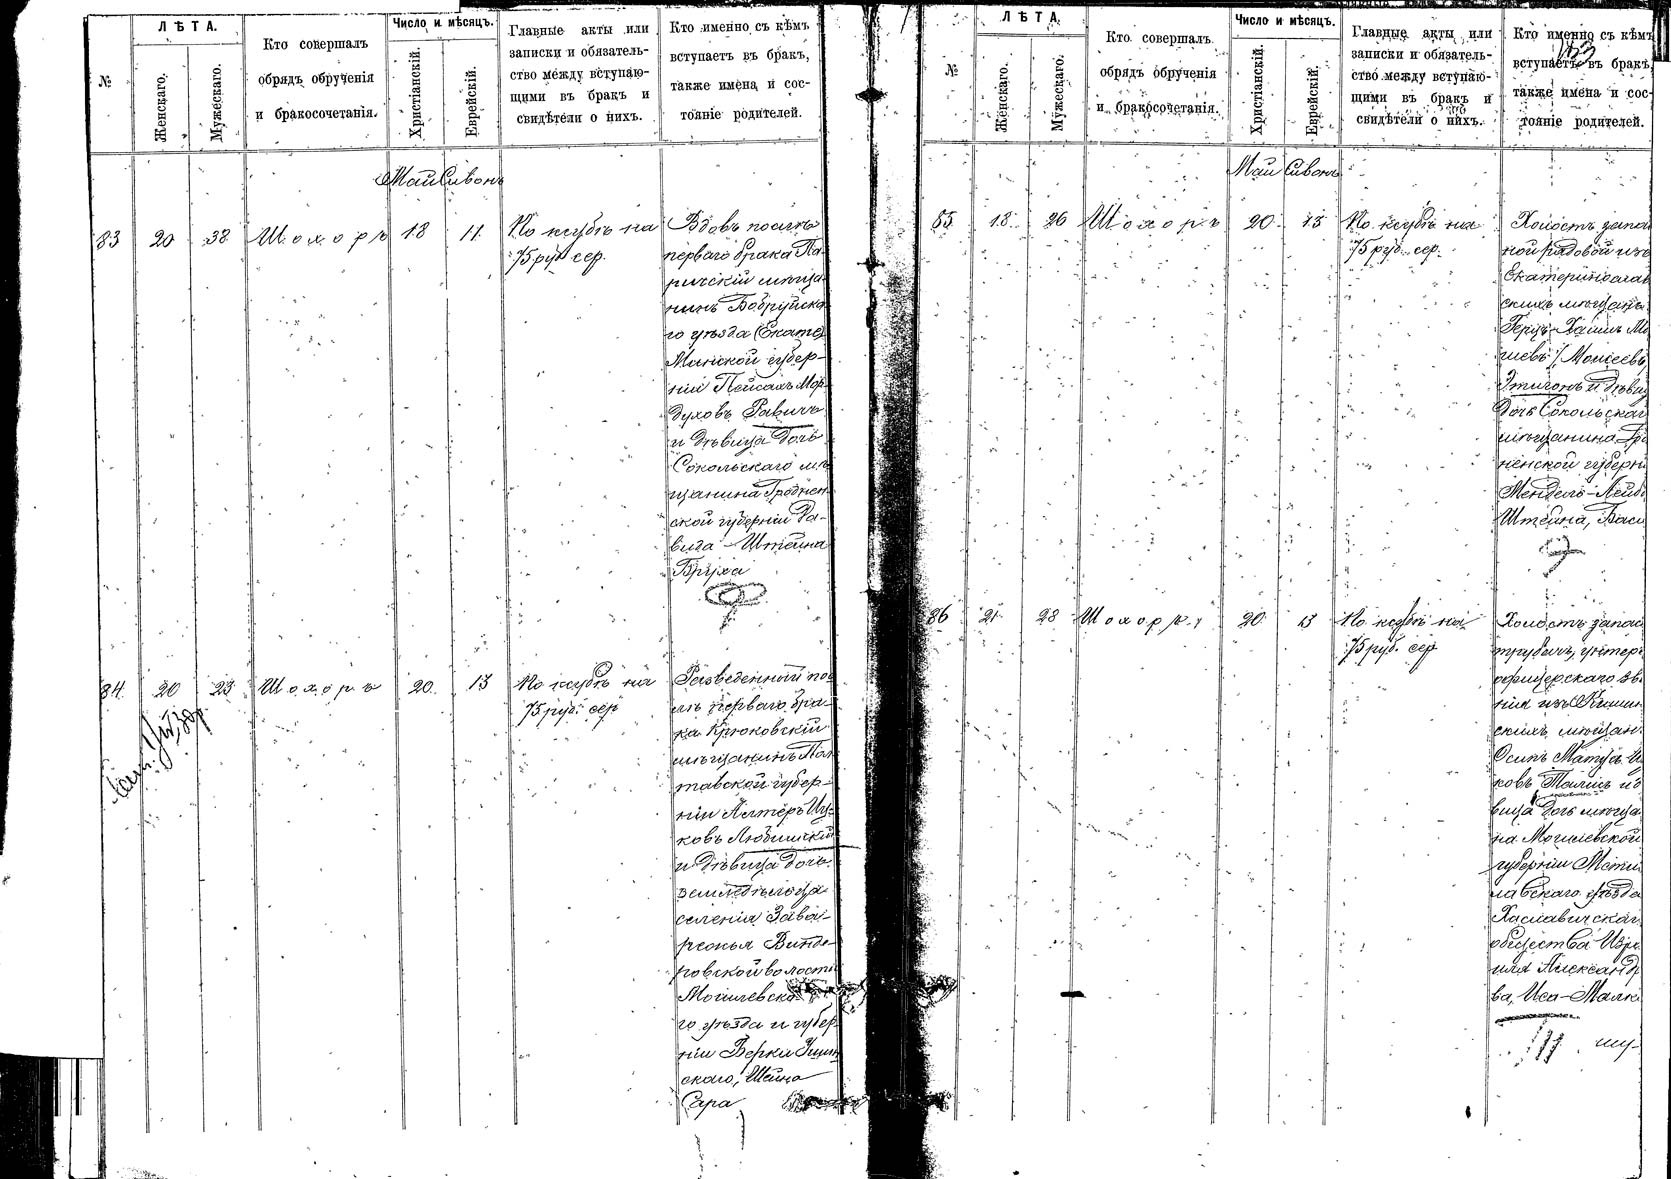 №
ЛѢТА.
Женскаго.
Мужескаго.
Кто совершалъ
обрядъ обрученія
и бракосочетанія.
Число и мѣсяцъ.
Христіанскій.
Еврейскій.
Главные акты или
записки и обязатель-
ство между вступаю-
щими въ бракъ и
свидѣтели о нихъ.
Кто именно съ кѣмъ
вступаетъ въ бракъ,
также имена и сос-
тояніе родителей.
Май Сивонъ
83 20 38 Шохоръ 18 11 По ксубѣ на
75 руб. сер.
Вдовъ послѣ
перваго брака Па-
ричскій мѣща-
нинъ Бобруйска-
го уѣзда (Екате)
Минской губер-
ніи Пейсахъ Мор-
духовъ Равичъ
и дѣвица дочь
Сокольскаго мѣ-
щанина Гроднен-
ской губерніи Да-
вида Штейна
Бруха
84 20 23 Шохоръ 20 13 По ксубѣ на
75 руб. сер
Разведенный по-
слѣ перваго бра-
ка Крюковскій
мѣщанинъ Пол
тавской губер-
ніи Алтеръ Иц-
ковъ Любимскій
и дѣвица дочь
земледѣльца
селенія Зава-
режья
ровской волости
Могилевска-
го уѣзда и губер
ніи Берки
скаго, Шейна
Сара
№
ЛѢТА.
Женскаго.
Мужескаго.
Кто совершалъ
обрядъ обрученія
и бракосочетанія.
Число и мѣсяцъ.
Христіанскій.
Еврейскій.
Главные акты или
записки и обязатель-
ство между вступаю-
щими въ бракъ и
свидѣтели о нихъ.
Кто именно съ кѣмъ
вступаетъ въ бракъ,
также имена и сос-
тояніе родителей.
Май Сивонъ
85 18 26 Шохоръ 20 13 По ксубѣ на
75 руб. сер.
Холостъ запас
ной рядовой изъ
Екатеринослав
скихъ мѣщанъ
Герцъ-Хаимъ Мо
(Моисеевъ)
Этигонъ и дѣви
дочь Сокольскаго
мѣщанина Гро
ненской губерн
Мендель-Лейб
Штейна, Бася
86 21 28 Шохоръ 20 13 По ксубѣ на
75 руб. сер
Холостъ запас
трубачъ, унтеръ
офицерскаго зв
нія изъ
скихъ мѣщан
Осипъ Матусъ И
ковъ Талисъ и д
вица дочь мѣща
на Могилевской
губерніи Мсти
лавскаго уѣзда
Хаславичскаго
общества Изра
иля Александр
ва, Иса-Малк